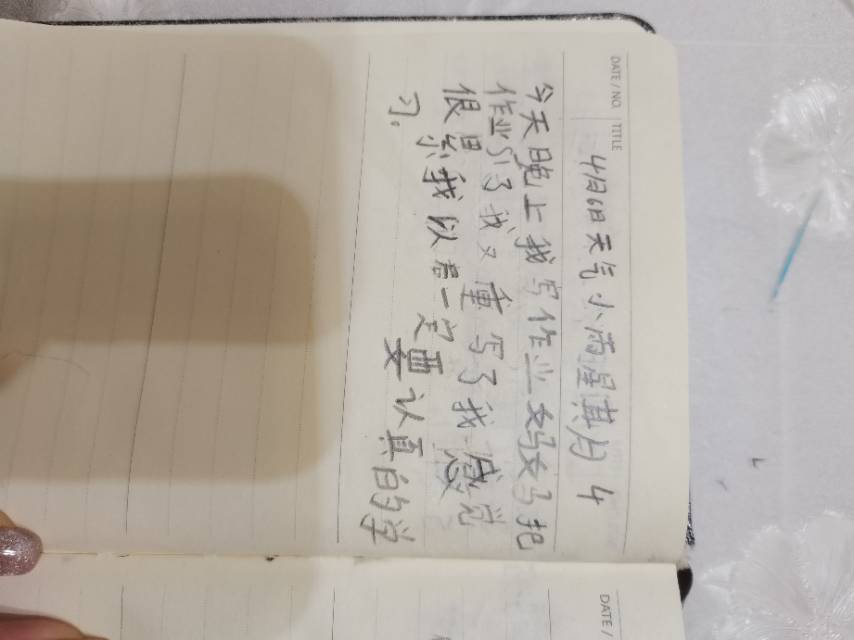 DATE / NO. TITLE
4月6日天气小雨星其月 4
今天晚上我写作业妈妈把
作业引了我又重写了我感觉
很累我以后一定要认真的学
习。
DATE /